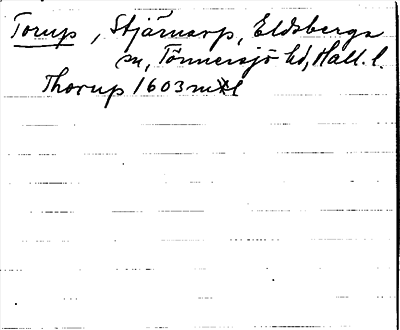 Torup, Stjärnarp, Eldsberga
sn, Tönnersjö hd, Hall. l.
Thorup 1603 mtl